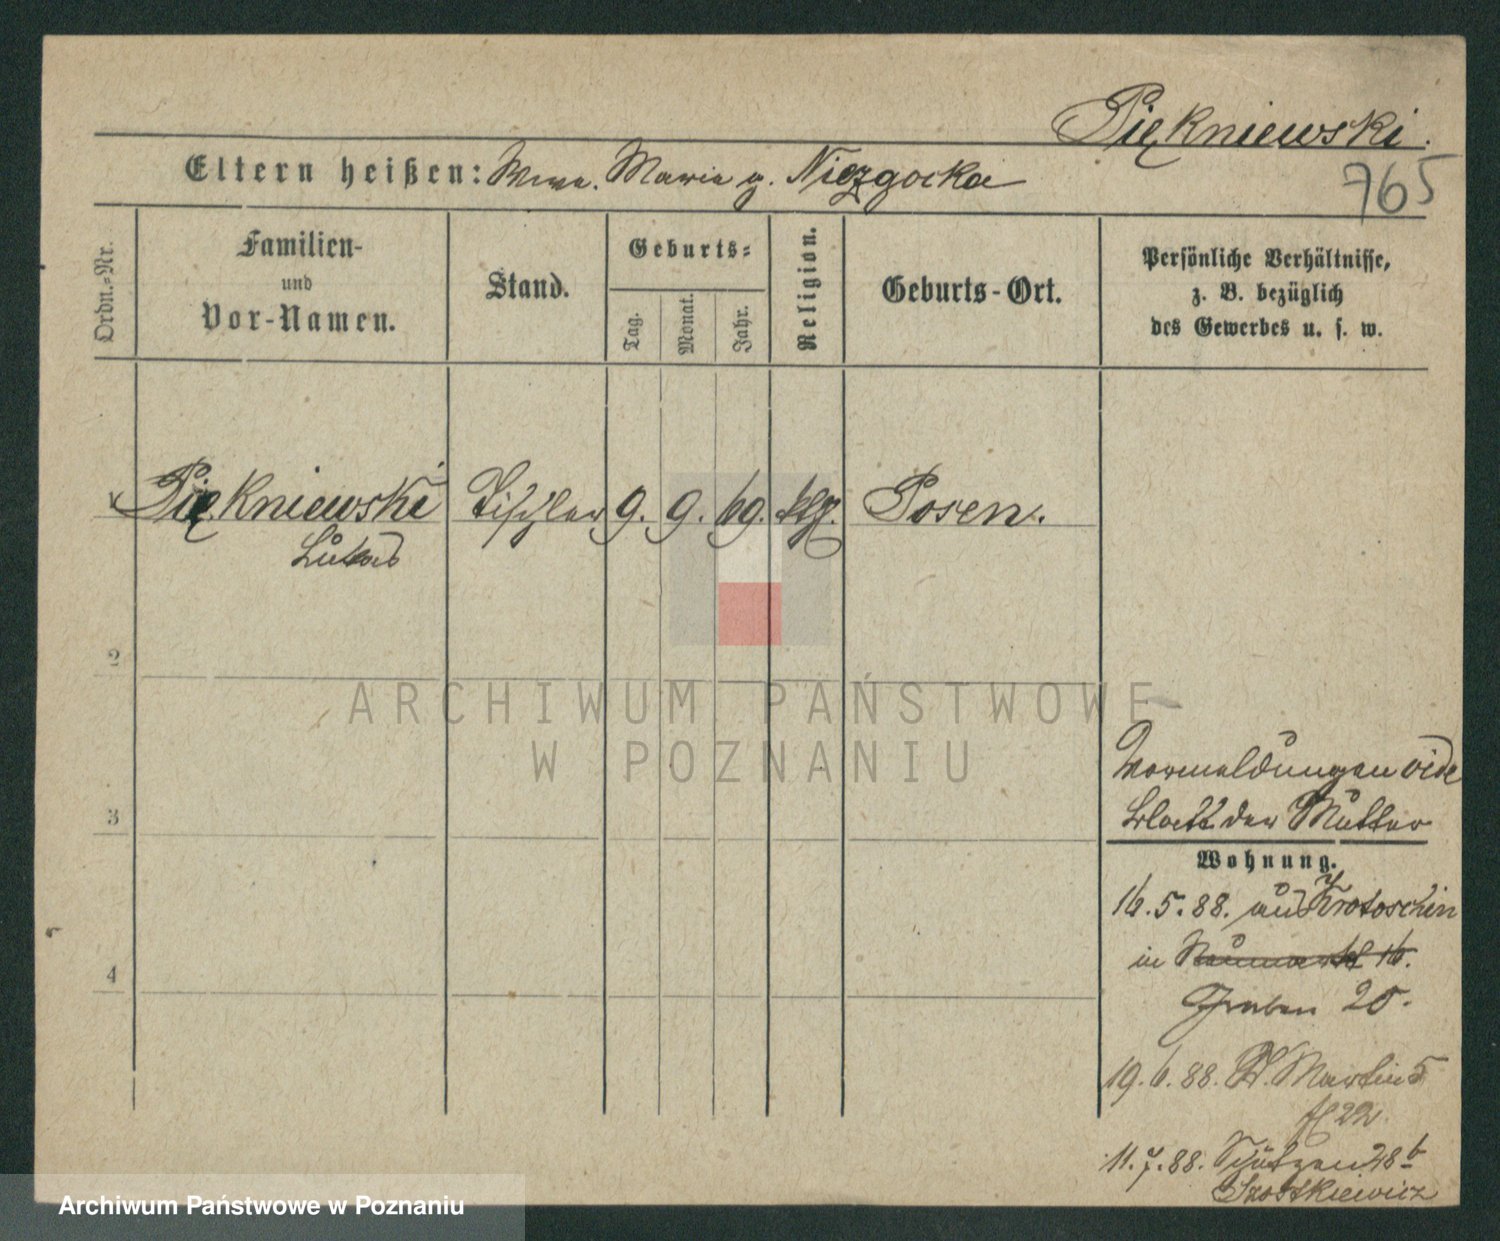 Piękniewski.
Eltern heißen: Wwe. Marie g. Niezgocka
765
Ordn.-Nr.
Familien-
und
Vor-Namen.
Stand.
Geburts-
Tag.
Monat.
Jahr.
Religion.
Geburts-Ort.
Persönliche Verhältnisse,
z. B. bezüglich
des Gewerbes u. s. w.
1 Piękniewski Tischler 9. 9. 69. klg. Posen.
Lukas
2
3
4
Vormeldungen vide
Blatt der Mutter
Wohnung.
16.5.88. aus Krotoschin
in Neumarkt 16.
Graben 25.
19.6.88. St. Martin 5
11.7.88. Schützen 28 b
Szostkiewicz
ARCHIWUM PAŃSTWOWE
W POZNANIU
Archiwum Państwowe w Poznaniu